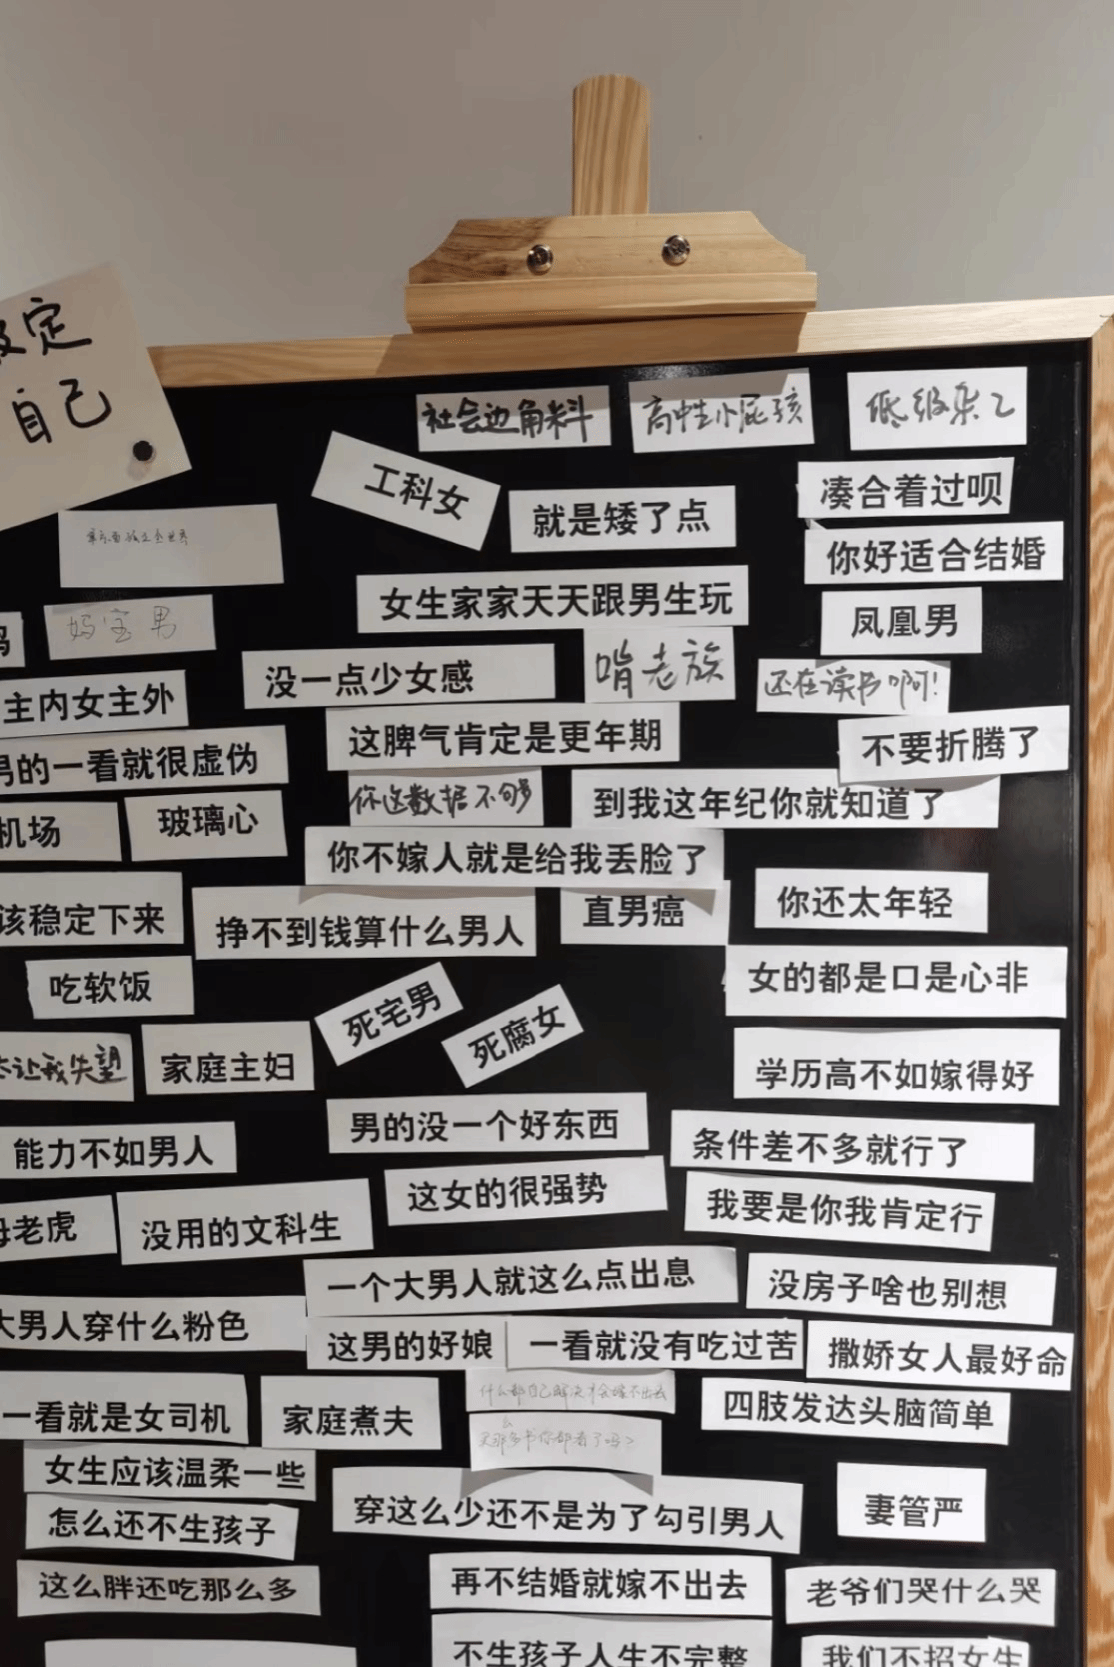 定
自己
社会边角料
高中生小屁孩
低级杂工
工科女
就是矮了点
凑合着过呗
你好适合结婚
女生家家天天跟男生玩
妈宝男
凤凰男
没一点少女感
啃老族
还在读书啊!
主内女主外
这脾气肯定是更年期
不要折腾了
男的一看就很虚伪
你这数据不够
到我这年纪你就知道了
机场
玻璃心
你不嫁人就是给我丢脸了
该稳定下来
挣不到钱算什么男人
直男癌
你还太年轻
吃软饭
死宅男
死腐女
女的都是口是心非
让我失望
家庭主妇
学历高不如嫁得好
能力不如男人
男的没一个好东西
条件差不多就行了
母老虎
没用的文科生
这女的很强势
我要是你我肯定行
一个大男人就这么点出息
没房子啥也别想
大男人穿什么粉色
这男的好娘
一看就没有吃过苦
撒娇女人最好命
一看就是女司机
家庭煮夫
什么都自己解决才会嫁不出去
四肢发达头脑简单
买那么多书你都看了吗?
女生应该温柔一些
穿这么少还不是为了勾引男人
妻管严
怎么还不生孩子
这么胖还吃那么多
再不结婚就嫁不出去
老爷们哭什么哭
不生孩子人生不完整
我们不招女生